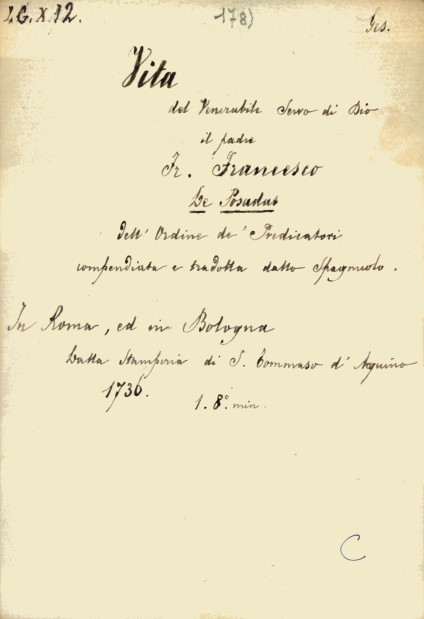 I.G.X.12.
178)
Ges.
Vita
del Venerabile Servo di Dio
il padre
Fr. Francesco
De Posadas
Dell' Ordine de' Predicatori
compendiata e tradotta dallo Spagnuolo.
In Roma, ed in Bologna
Dalla Stamperia di S. Tommaso d' Aquino
1736.
1. 8.º min.
C